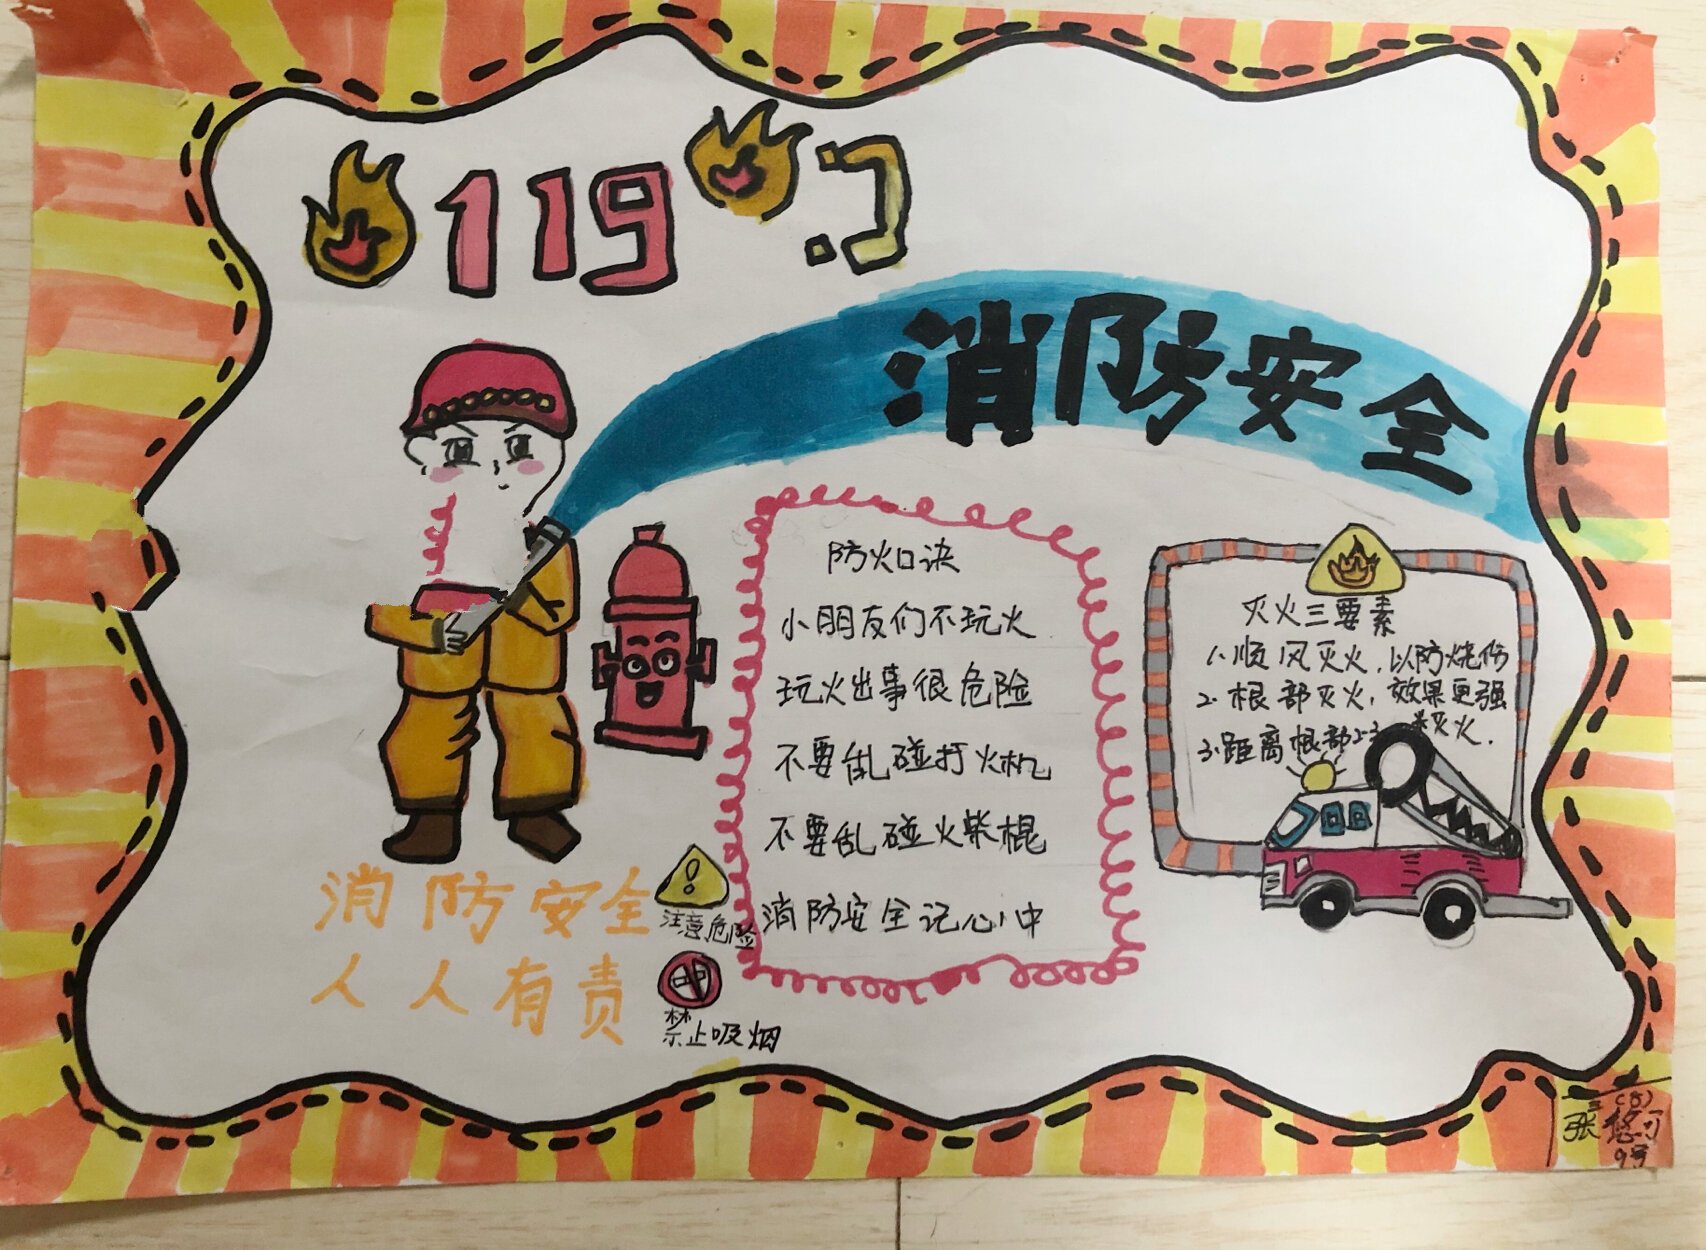 119
消防安全
防火口诀
小朋友们不玩火
玩火出事很危险
不要乱碰打火机
不要乱碰火柴棍
消防安全记心中
灭火三要素
1.顺风灭火,以防烧伤
2.根部灭火,效果更强
3.距离根部2-3 灭火.
消防安全
人人有责
注意危险
禁止吸烟
三(5)
张悠可
9号